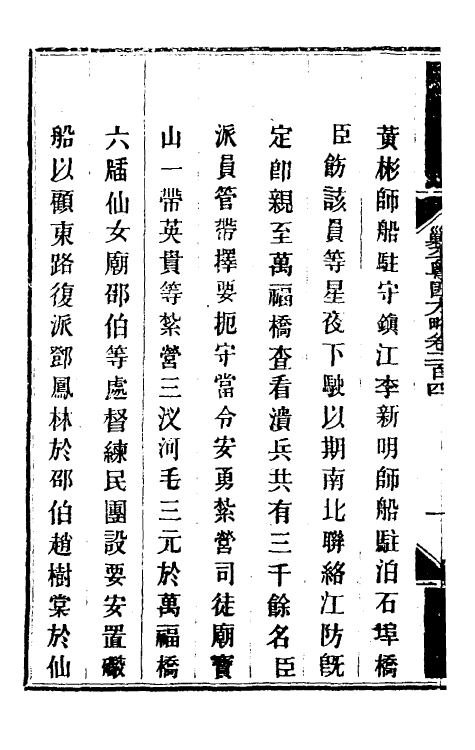 黃彬師船駐守鎮江李新明師船駐泊石埠橋
臣飭該員等星夜下駛以期南北聯絡江防旣
定卽親至萬福橋查看潰兵共有三千餘名臣
派員管帶擇要扼守當令安勇紮營司徒廟寶
山一帶英貴等紮營三汊河毛三元於萬福橋
六牐仙女廟邵伯等處督練民團設要安置礮
船以顧東路復派鄧鳳林於邵伯趙樹棠於仙
剿平粵匪方略卷二百四
一